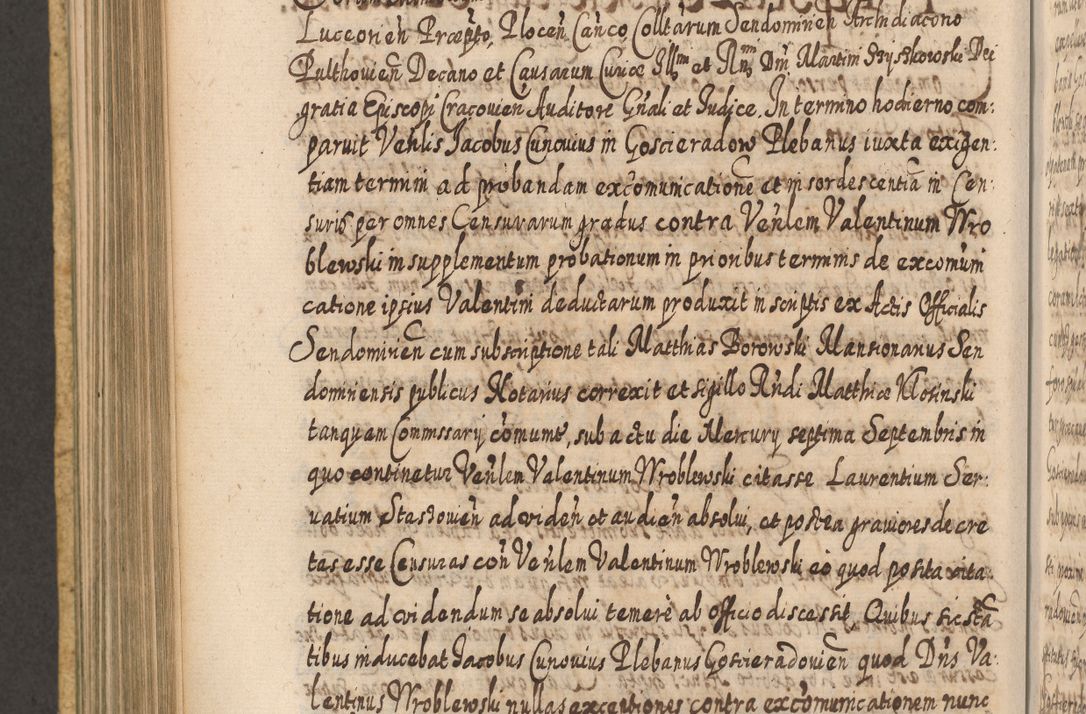 Luceorien Præpto, Plocen Canco, Colltarum Sendomirien Archidiacono
Pulthouien Decano et Causarum Curiæ Illmi et Rmi Dni Martini Szyszkowski Dei
gratia Episcopi Cracouien Auditore Gnali et Judice. In termino hodierno com:
paruit Venlis Jacobus Cunouius in Goscieradow Plebanus iuxta exigen:
tiam termini ad probandam excomunicatione et insordescentia in Cen:
suris per omnes Censurarum gradus contra Venlem Valentinum Wro
blewski in supplementum probationum in prioribus terminis de excomuni
catione ipsius Valentini deductarum produxit in scriptis ex Actis Officialis
Sendomirien cum subscriptione tali Matthias Borowski Mansionarius Sen
domiriensis publicus Notarius correxit et sigillo Rndi Matthiæ Klosinski
tanquam Commssarij comunit, sub actu die Mercurij septima Septembris in
quo continetur Venlem Valentinum Wroblewski citasse Laurentium Ser:
uatium Staszouien ad viden et audien absolui, et postea grauiores decre
tas esse Censuras con Venlem Valentinum Wroblewski eo quod posita cita:
tione ad videndum se absolui temere ab officio discessit, Quibus sic sta
tibus inducebat Jacobus Cunouius Plebanus Goscieradouien quod Dns Va:
lentinus Wroblewski nullas exceptiones contra excomunicationem nunc